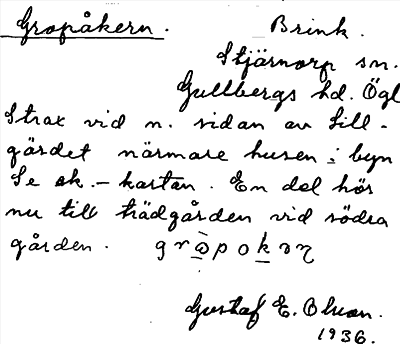 Gropåkern. Brink.
Stjärnorp sn.
Gullbergs hd. Ögl
Strax vid n. sidan av Lill-
gärdet närmare husen i byn
Se ek.-kartan. En del hör
nu till trädgården vid södra
gården.
Gustaf E. Olson.
1936.